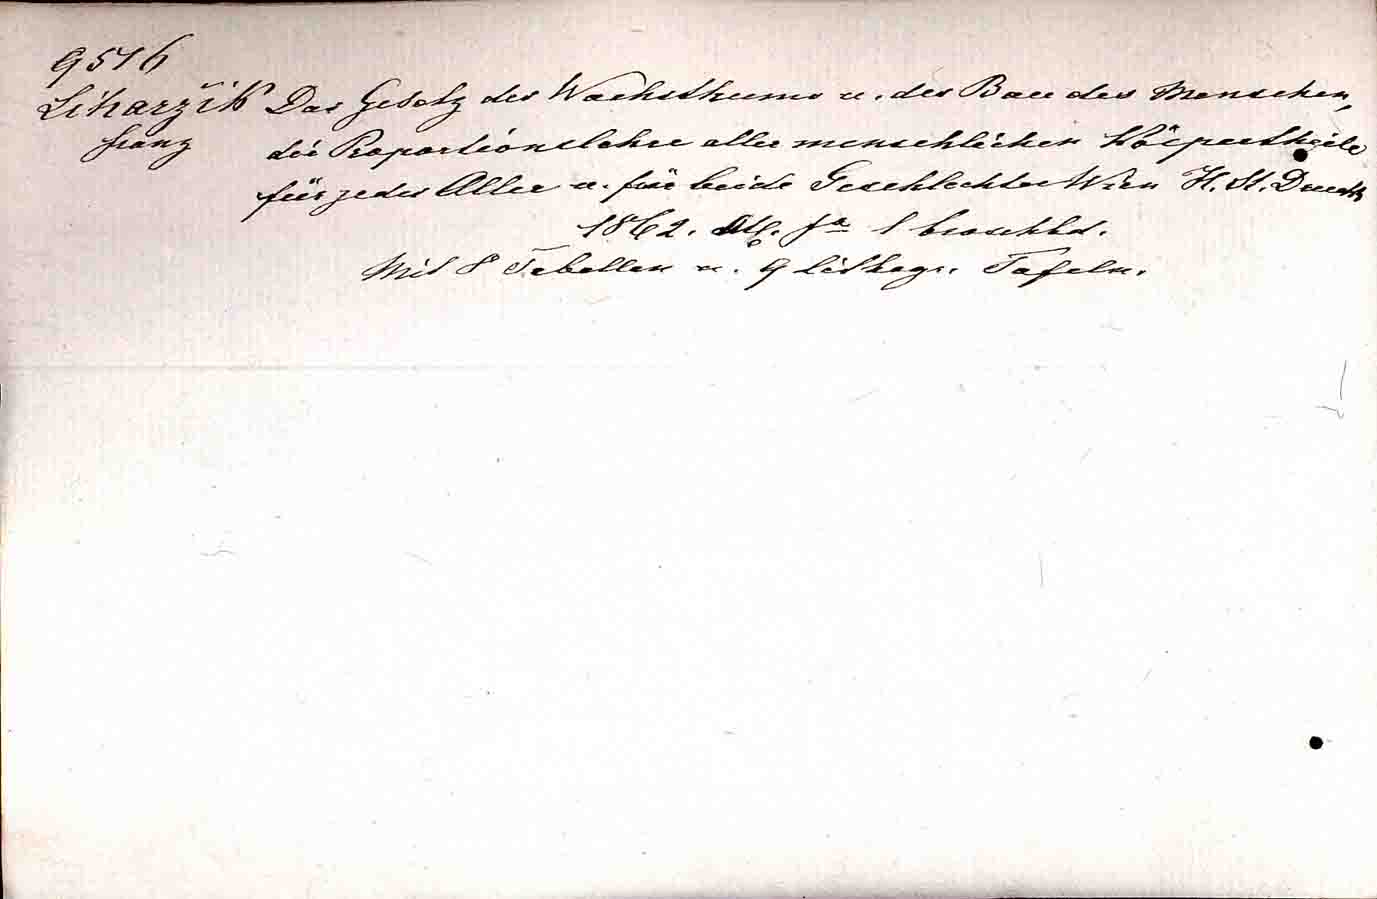 9516
Liharžik Das Gesetz des Wachsthums u. der Bau des Menschen,
Franz die Proportionslehre aller menschlichen Körpertheile
für jedes Alter u. für beide Geschlechter Wien H. St. Druck
1862. Atl. fo 1 broschbd.
Mit 8 Tabellen u. 9 lithogr. Tafeln.